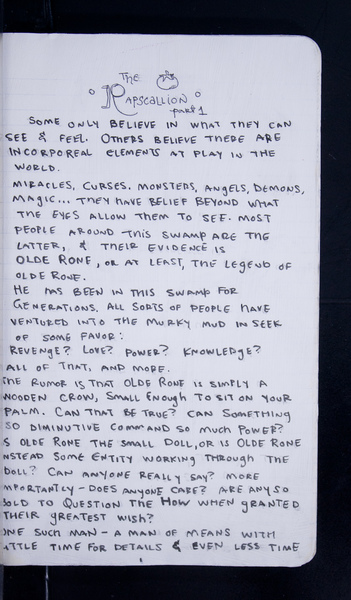 The
"Rapscallion"
part 1
SOME ONLY BELIEVE IN WHAT THEY CAN
SEE & FEEL. OTHERS BELIEVE THERE ARE
INCORPOREAL ELEMENTS AT PLAY IN THE
WORLD.
MIRACLES, CURSES. MONSTERS, ANGELS, DEMONS,
MAGIC... THEY HAVE BELIEF BEYOND WHAT
THE EYES ALLOW THEM TO SEE. MOST
PEOPLE AROUND THIS SWAMP ARE THE
LATTER, & THEIR EVIDENCE IS
OLDE RONE, OR AT LEAST, THE LEGEND OF
OLDE RONE.
HE HAS BEEN IN THIS SWAMP FOR
GENERATIONS. ALL SORTS OF PEOPLE HAVE
VENTURED INTO THE MURKY MUD IN SEEK
OF SOME FAVOR:
REVENGE? LOVE? POWER? KNOWLEDGE?
ALL OF THAT, AND MORE.
THE RUMOR IS THAT OLDE RONE IS SIMPLY A
WOODEN CROW, SMALL ENOUGH TO SIT ON YOUR
PALM. CAN THAT BE TRUE? CAN SOMETHING
SO DIMINUTIVE COMMAND SO MUCH POWER?
IS OLDE RONE THE SMALL DOLL, OR IS OLDE RONE
INSTEAD SOME ENTITY WORKING THROUGH THE
DOLL? CAN ANYONE REALLY SAY? MORE
IMPORTANTLY - DOES ANYONE CARE? ARE ANY SO
BOLD TO QUESTION THE HOW WHEN GRANTED
THEIR GREATEST WISH?
ONE SUCH MAN - A MAN OF MEANS WITH
LITTLE TIME FOR DETAILS & EVEN LESS TIME